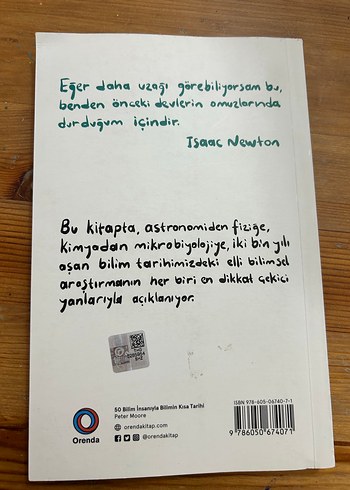 Eğer daha uzağı görebiliyorsam bu,
benden önceki devlerin omuzlarında
durduğum içindir.
Isaac Newton
Bu kitapta, astronomiden fiziğe,
kimyadan mikrobiyolojiye, iki bin yılı
aşan bilim tarihimizdeki elli bilimsel
araştırmanın her biri en dikkat çekici
yanlarıyla açıklanıyor.
Orenda
50 Bilim İnsanıyla Bilimin Kısa Tarihi
Peter Moore
orendakitap.com
@orendakitap
ISBN 978-605-06740-7-1
9 786050 674071